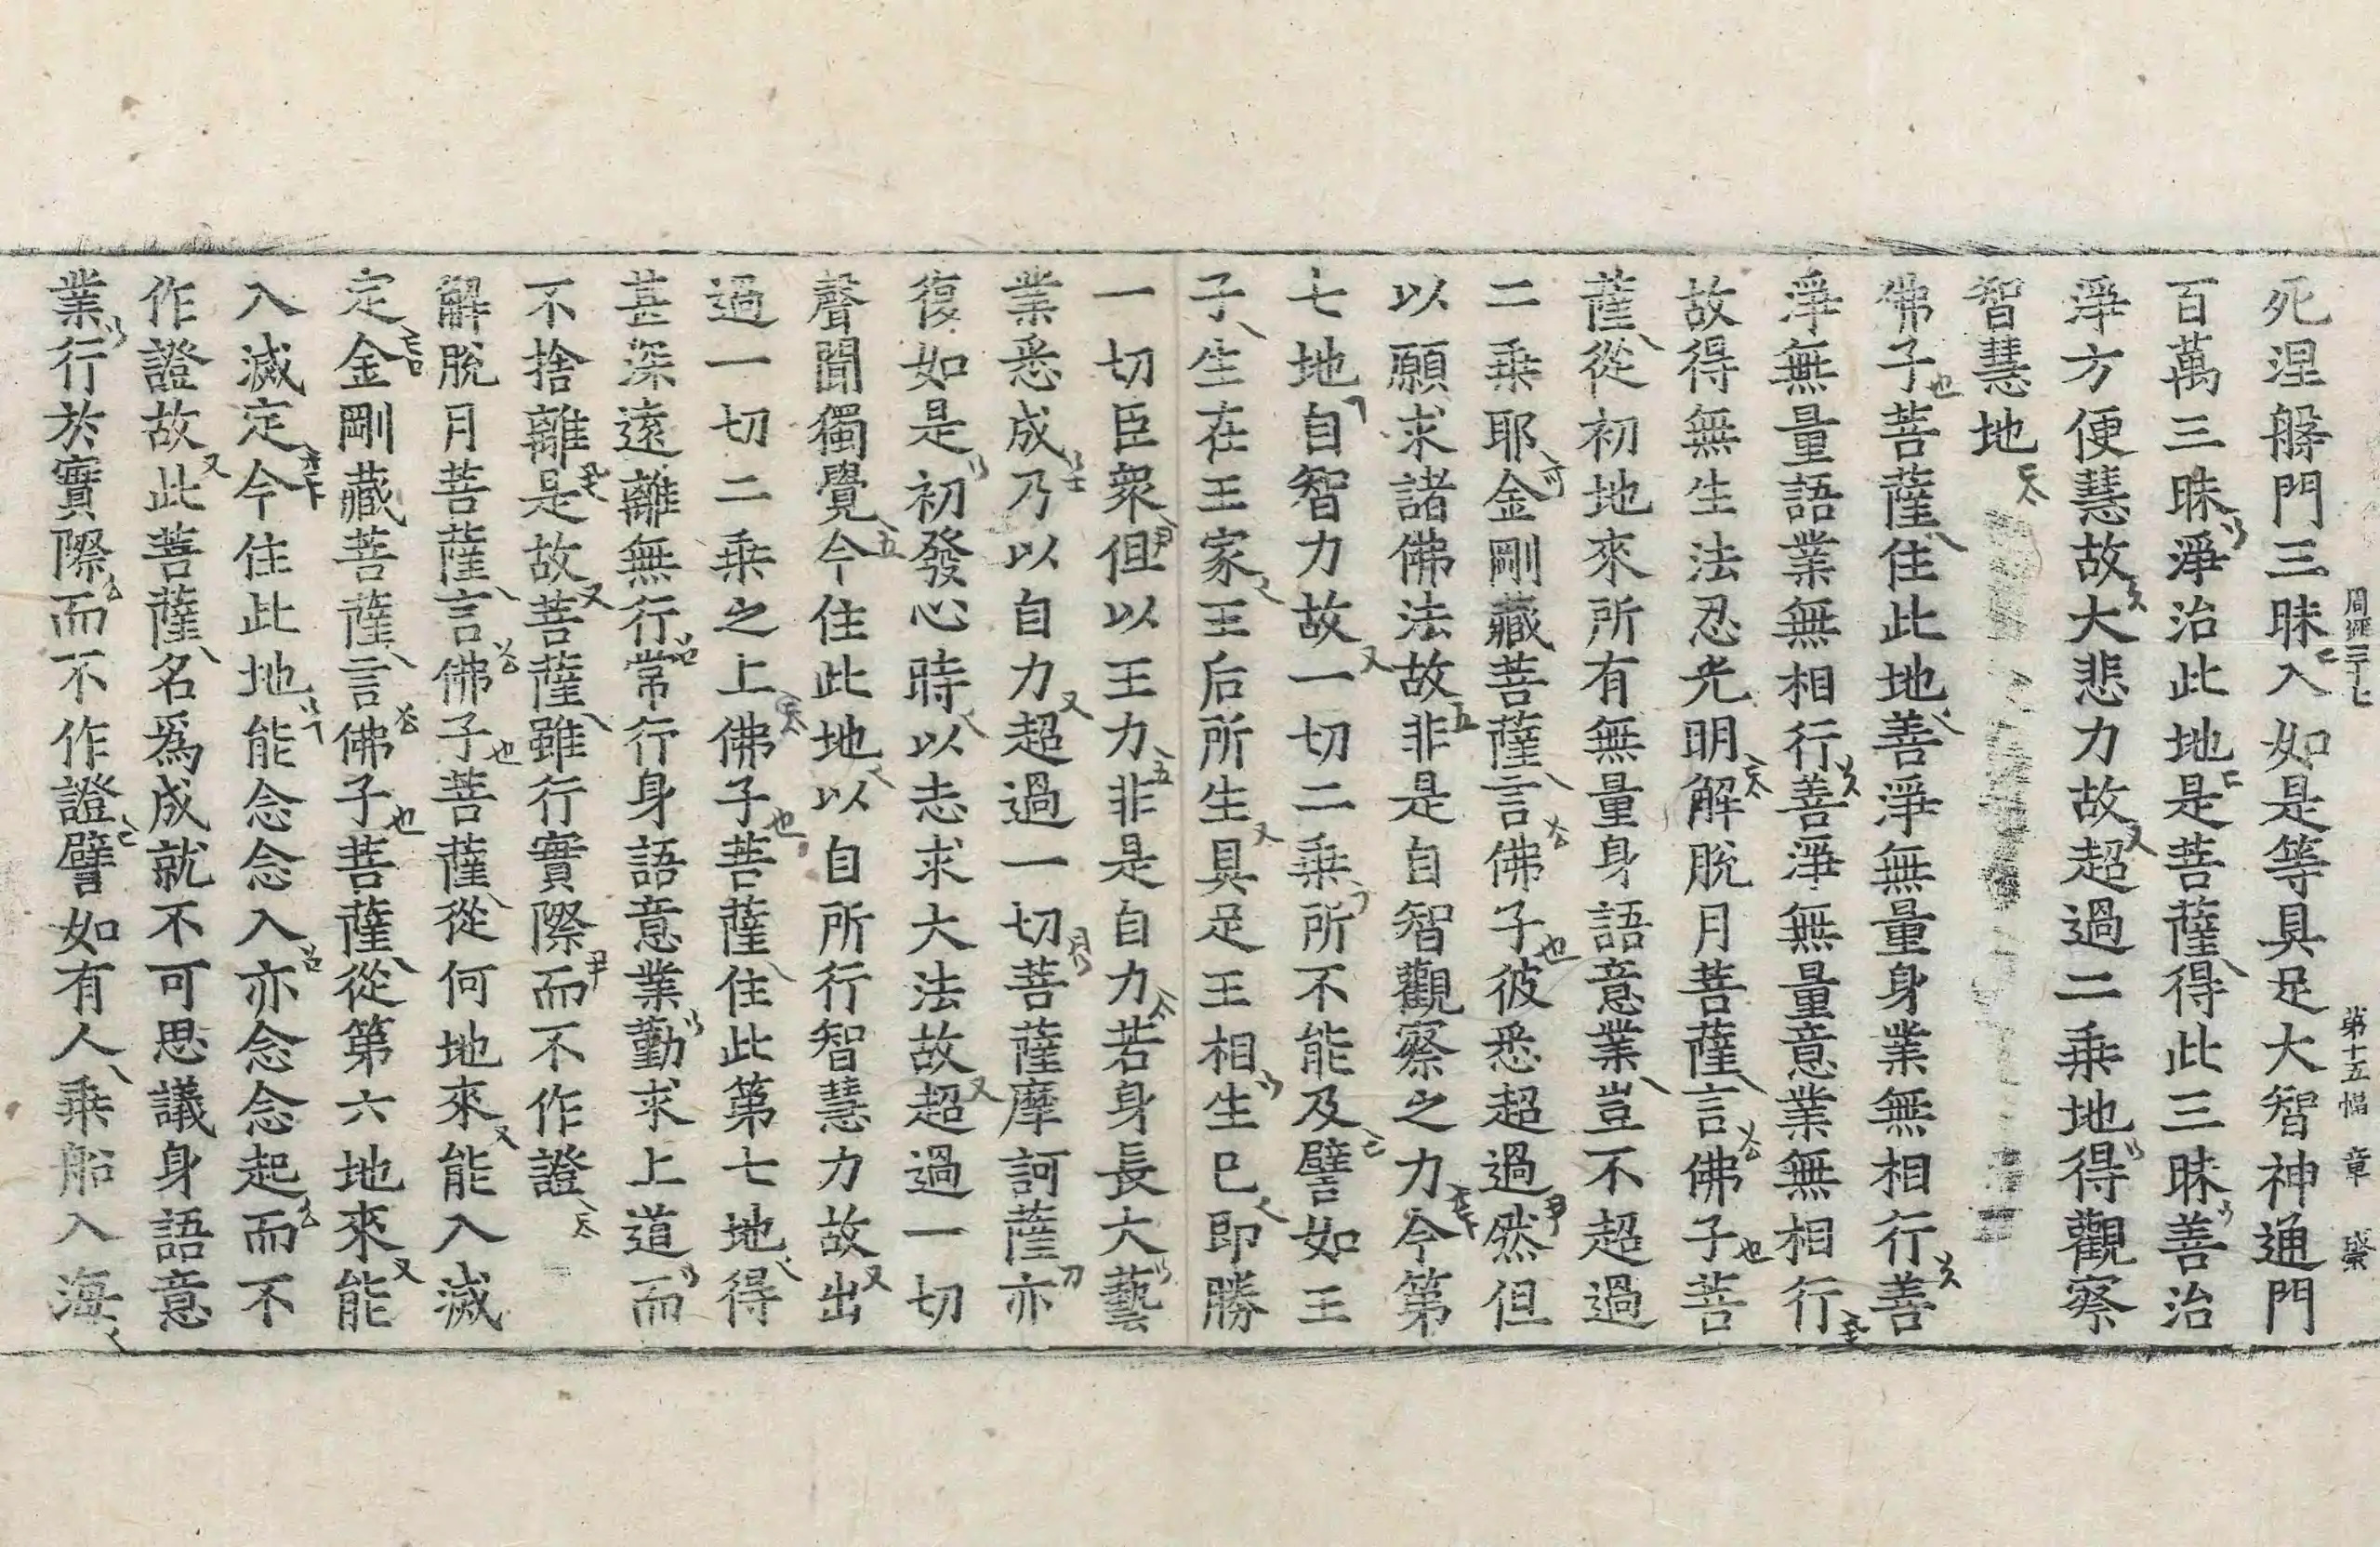 周經三十七 第十五幅 章 盛
死涅槃門三昧入如是等具足大智神通門
百萬三昧淨治此地是菩薩得此三昧善治
淨方便慧故大悲力故超過二乘地得觀察
智慧地
佛子菩薩住此地善淨無量身業無相行善
淨無量語業無相行善淨無量意業無相行
故得無生法忍光明解脫月菩薩言佛子菩
薩從初地來所有無量身語意業豈不超過
二乘耶金剛藏菩薩言佛子彼悉超過然但
以願求諸佛法故非是自智觀察之力今第
七地自智力故一切二乘所不能及譬如王
子生在王家王后所生具足王相生已即勝
一切臣衆但以王力非是自力若身長大藝
業悉成乃以自力超過一切菩薩摩訶薩亦
復如是初發心時以志求大法故超過一切
聲聞獨覺今住此地以自所行智慧力故出
過一切二乘之上佛子菩薩住此第七地得
甚深遠離無行常行身語意業勤求上道而
不捨離是故菩薩雖行實際而不作證
解脫月菩薩言佛子菩薩從何地來能入滅
定金剛藏菩薩言佛子菩薩從第六地來能
入滅定今住此地能念念入亦念念起而不
作證故此菩薩名爲成就不可思議身語意
業行於實際而不作證譬如有人乘船入海